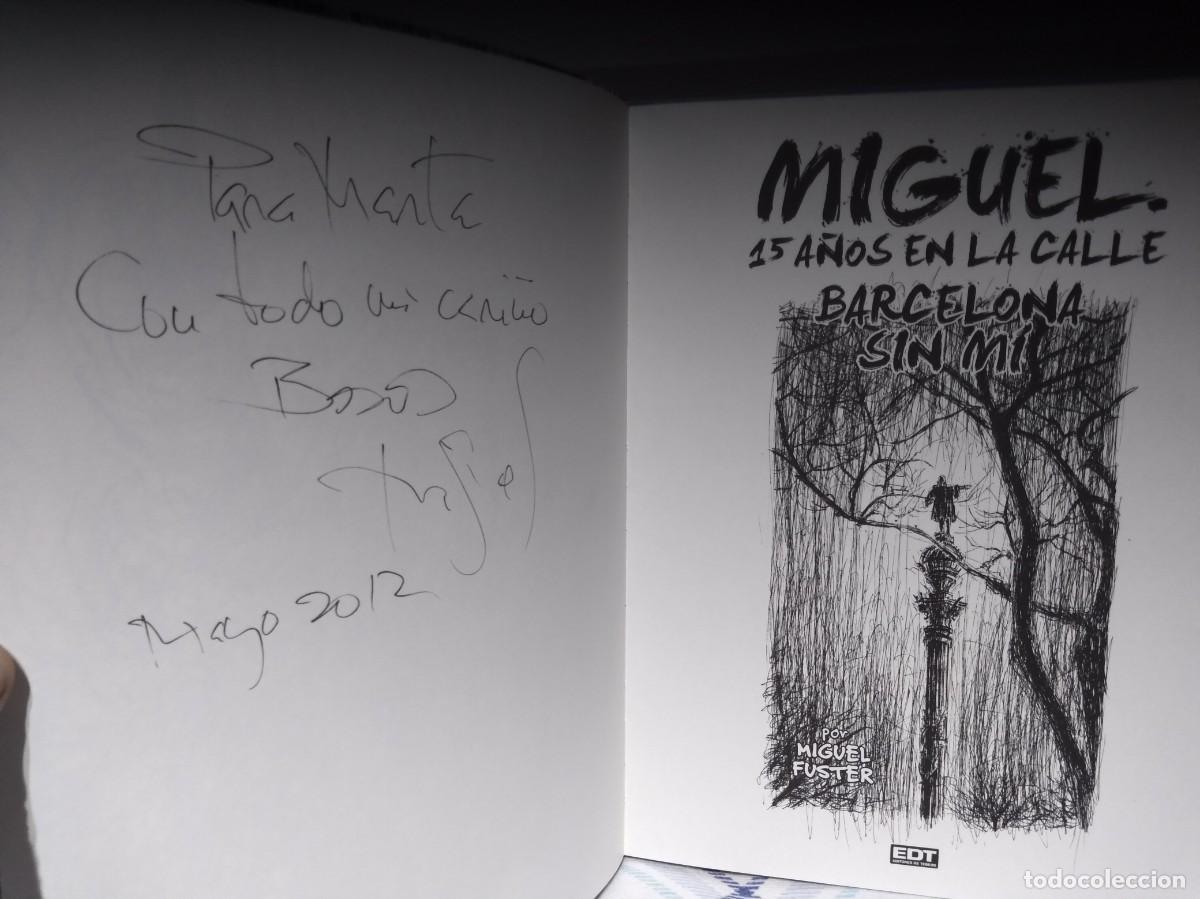 Para Marta
Con todo mi cariño
Besos
Mayo 2012
MIGUEL.
15 AÑOS EN LA CALLE
BARCELONA
SIN MÍ
POR
MIGUEL
FUSTER
EDT
EDITORES DE TEBEOS
todocoleccion